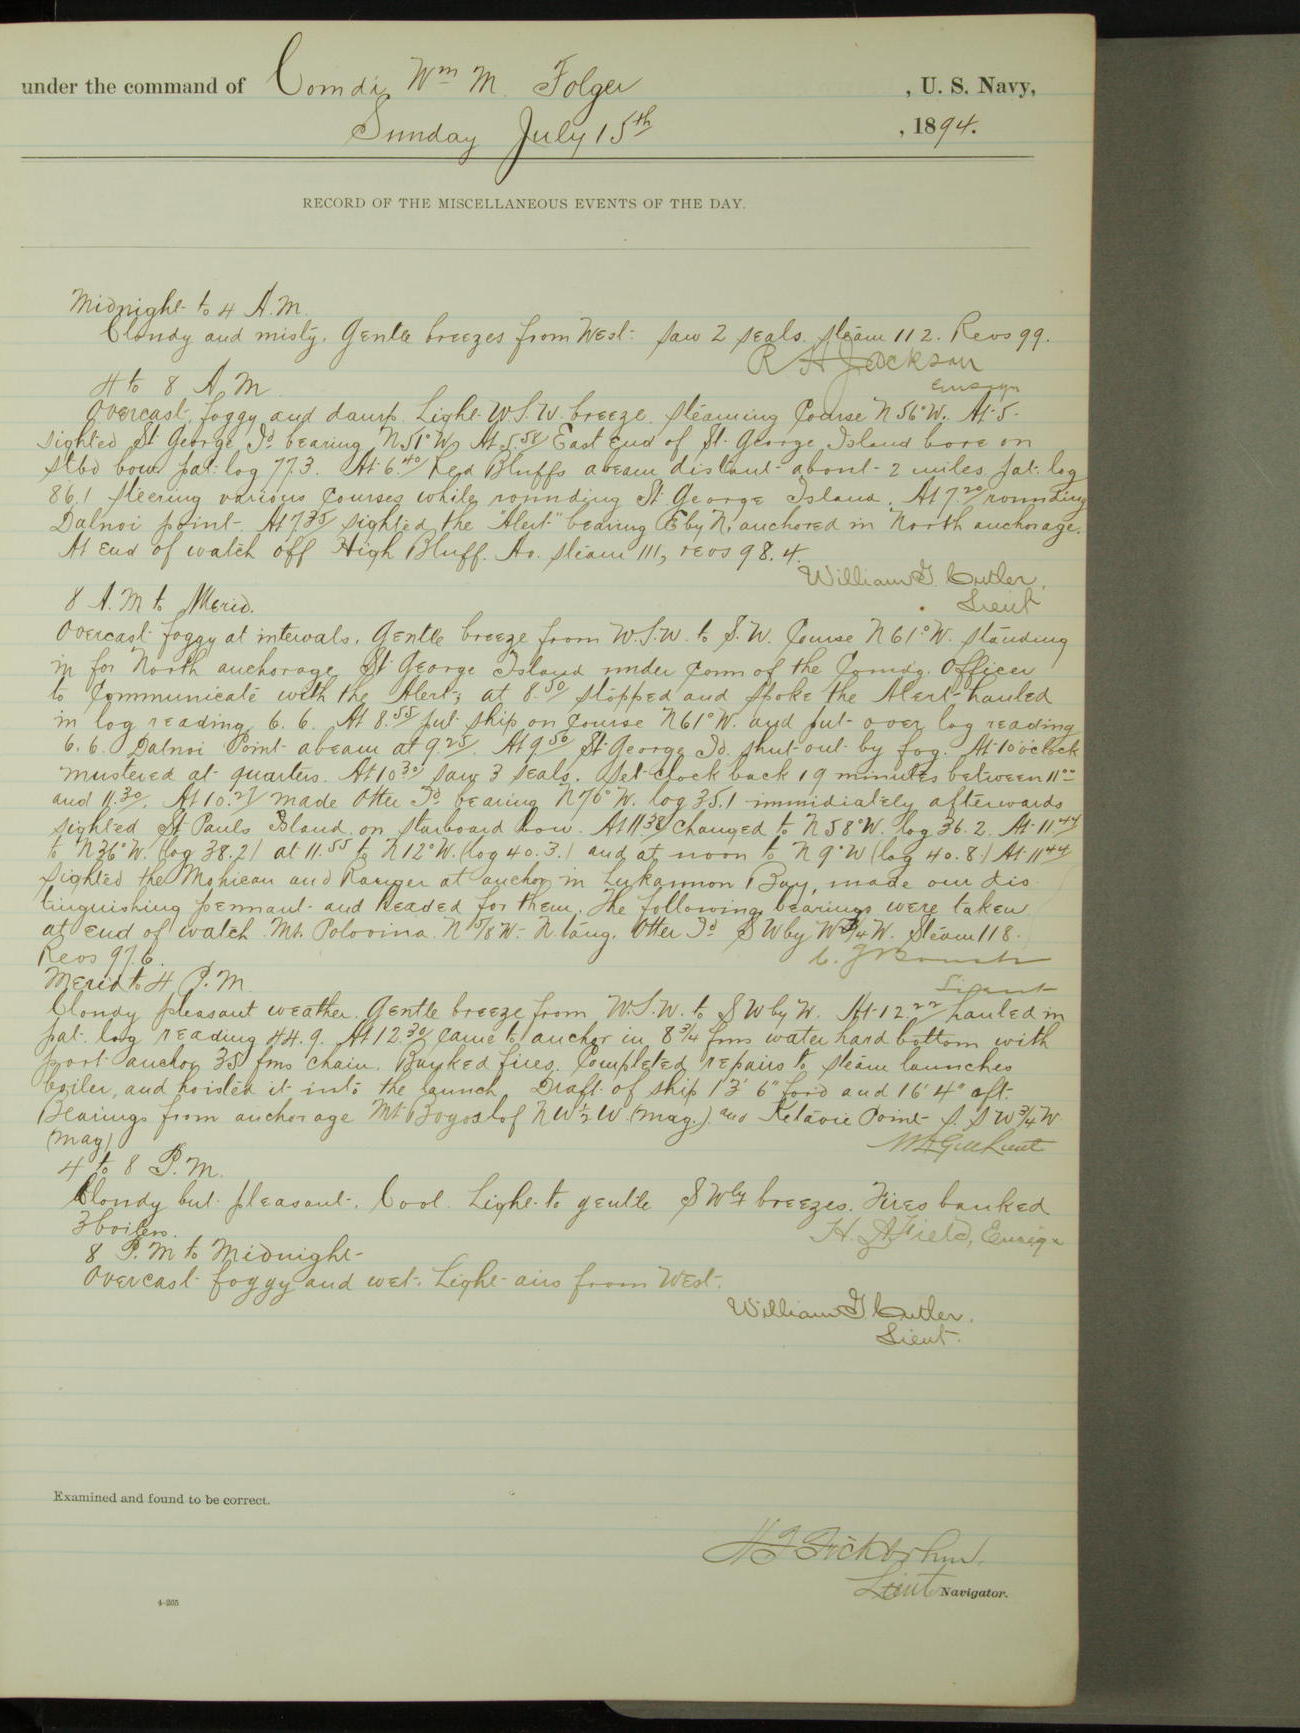 under the command of Comdr Wm M. Folger, U. S. Navy,
Sunday July 15th, 1894.
RECORD OF THE MISCELLANEOUS EVENTS OF THE DAY.
Midnight to 4 A.M.
Cloudy and misty. Gentle breezes from West. Saw 2 seals. Steam 112. Revs 99.
R H Jackson
Ensign
4 to 8 A.M
Overcast, foggy and damp. Light W.S.W. breeze. Steaming Course N 56° W. At 5
sighted St George Id bearing N 51° W. At 5.58 East End of St. George Island bore on
stbd bow pat. log 77.3. At 6.40 Red Bluffs abeam distant about 2 miles pat. log
86.1 steering various courses while rounding St George Island. At 7.20 rounding
Dalnoi point. At 7.35 sighted the "Alert" bearing E by N, anchored in North anchorage.
At end of watch off High Bluff. Av. steam 111, revs 98.4.
William G. Cutler,
Lieut
8 A.M to Merid.
Overcast foggy at intervals. Gentle breeze from W.S.W. to S.W. Course N 61° W. standing
in for North anchorage St George Island under conn of the Comdg. Officer
to communicate with the Alert; at 8.50 stopped and spoke the Alert hauled
in log reading 6.6. At 8.55 put ship on course N 61° W. and put over log reading
6.6. Dalnoi Point abeam at 9.25. At 9.50 St George Id. shut out by fog. At 10 o'clock
mustered at quarters. At 10.30 saw 3 seals. Set clock back 19 minutes between 11.00
and 11.30. At 10.27 made Otter Id bearing N 70° W. log 35.1 immidiately afterwards
sighted St Pauls Island on starboard bow. At 11.38 changed to N 58° W. log 36.2. At 11.44
to N 36° W. (log 38.2) at 11.55 to N 12° W. (log 40.3.) and at noon to N 9° W (log 40.8.) At 11.44
sighted the Mohican and Ranger at anchor in Lukannon Bay, made our dis
tinguishing pennant and headed for them. The following bearings were taken
at end of watch Mt. Polovina N 7/8 W. N. tang. Otter Id S W by W 3/4 W. Steam 118.
Revs 97.6.
Lieut
Merid to 4 P.M
Cloudy pleasant weather. Gentle breeze from W.S.W. to S W by W. At 12.22 hauled in
pat. log reading 44.9. At 12.30 came to anchor in 8 3/4 fms water hard bottom with
port anchor 35 fms chain. Banked fires. Completed repairs to steam launches
boiler, and hoisted it into the launch. Draft of ship 13' 6" for'd and 16' 4" aft.
Bearings from anchorage Mt Bogoslof N W 1/2 W (mag.) and Ketavie Point S. S W 3/4 W
(mag)
Lieut
4 to 8 P.M.
Cloudy but pleasant. Cool. Light to gentle S Wly breezes. Fires banked
3 boilers.
H. A Field, Ensign
8 P.M to Midnight
Overcast foggy and wet. Light airs from West.
William G. Cutler.
Lieut.
Examined and found to be correct.
Lieut Navigator.
4-205